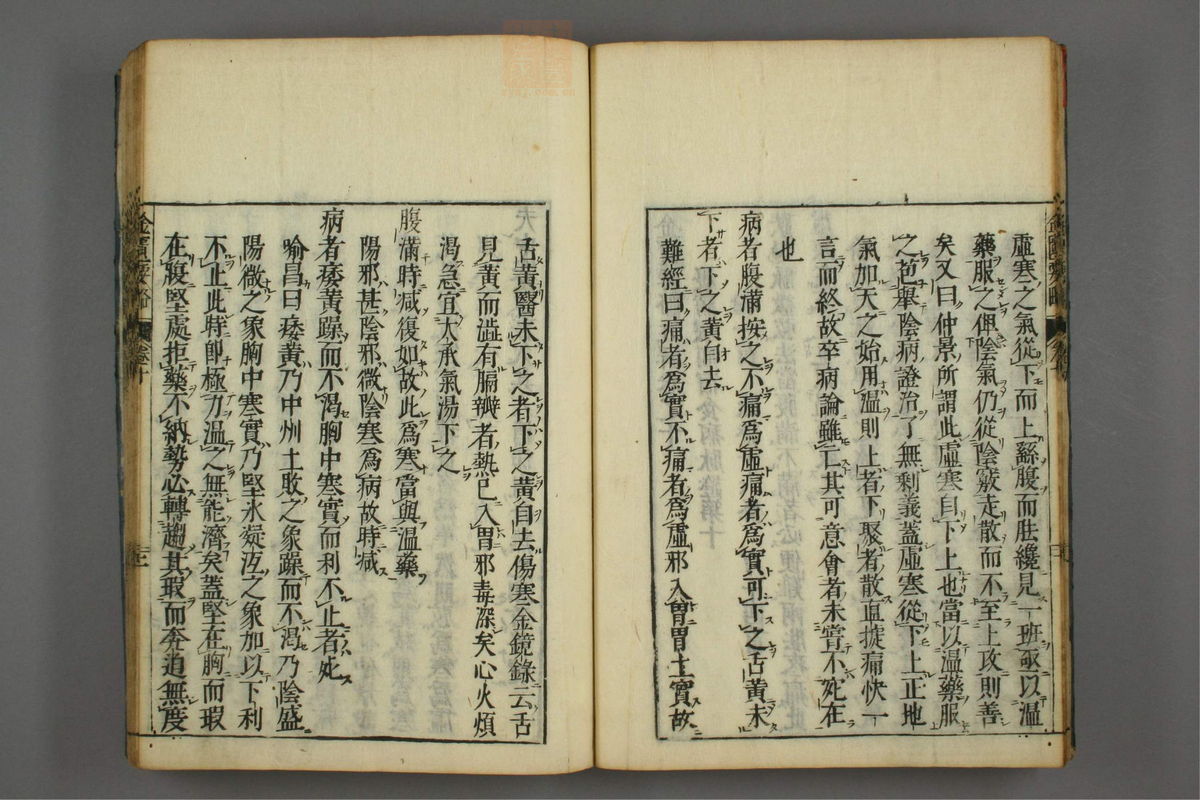 虛寒之氣從下而上繇腹而胠纔見一班亟以温
藥服之俾陰氣仍從陰竅走散而不至上攻則善
矣又曰仲景所謂此虛寒自下上也當以温藥服
之苞舉陰病證治了無剩義蓋虛寒從下上正地
氣加天之始用温則上者下聚者散直捷痛快一
言而終故卒病論雖亡其可意會者未嘗不宛在
也
病者腹滿按之不痛爲虛痛者爲實可下之舌黄未
下者下之黄自去
難經曰痛者爲實不痛者爲虛邪入胃胃土實故
舌黄醫未下之者下之黄自去傷寒金鏡錄云舌
見黄而澁有膈瓣者熱已入胃邪毒深矣心火煩
渴急宜大承氣湯下之
腹滿時减復如故此爲寒當與温藥
陽邪甚陰邪微陰寒爲病故時减
病者痿黄躁而不渴胸中寒實而利不止者死
喻昌曰痿黄乃中州土敗之象躁而不渴乃陰盛
陽微之象胸中寒實乃堅氷凝沍之象加以下利
不止此時即極力温之無能濟矣蓋堅在胸而瑕
在腹堅處拒藥不納勢必轉趨其瑕而奔迫無度